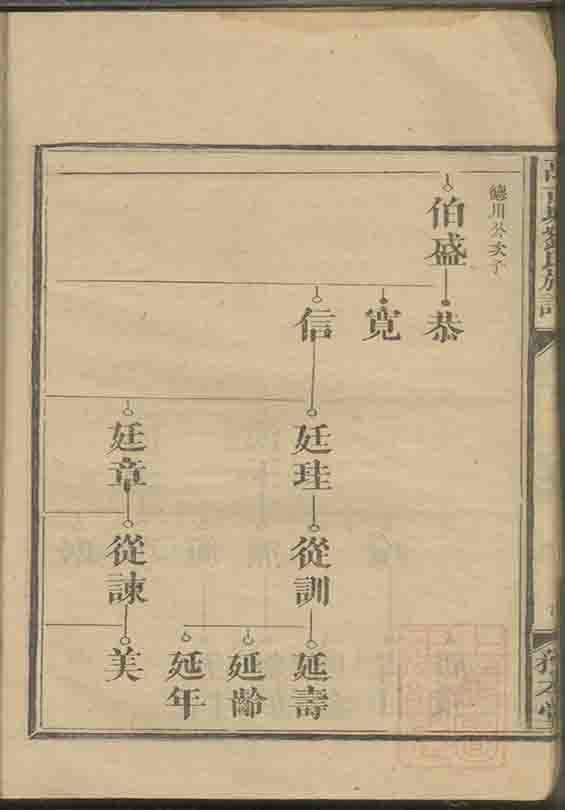 德川公次子
伯盛
恭
寬
信
廷珪
廷章
從訓
從諫
延壽
延齡
延年
美